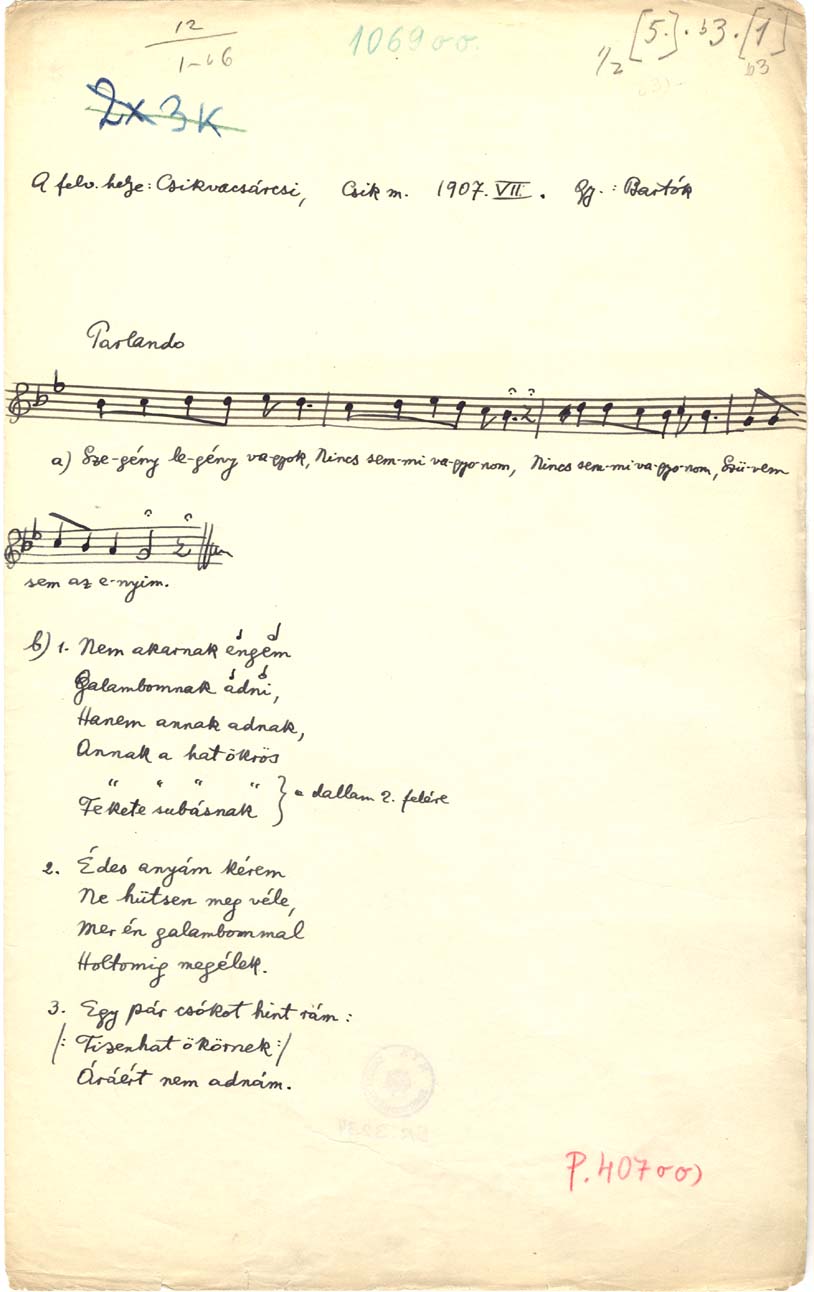 12
1-b6
1069oo.
1/2 [5.]. b3. [1]
b3
2x 3K
A felv. helye: Csikvacsárcsi, Csik m. 1907. VII. Gy.: Bartók
Parlando
a) Sze-gény le-gény va-gyok, Nincs sem-mi va-gyo-nom, Nincs sem-mi va-gyo-nom, Szü-vem
sem az e-nyim.
b) 1. Nem akarnak engem
Galambomnak adni,
Hanem annak adnak,
Annak a hat ökrös
" " " "
Fekete subásnak } a dallam 2. felére
2. Édes anyám kérem
Ne hütsen meg véle,
Mer én galambommal
Holtomig megélek.
3. Egy pár csókot hint rám:
/: Tizenhat ökörnek :/
Áráért nem adnám.
P. 407oo)